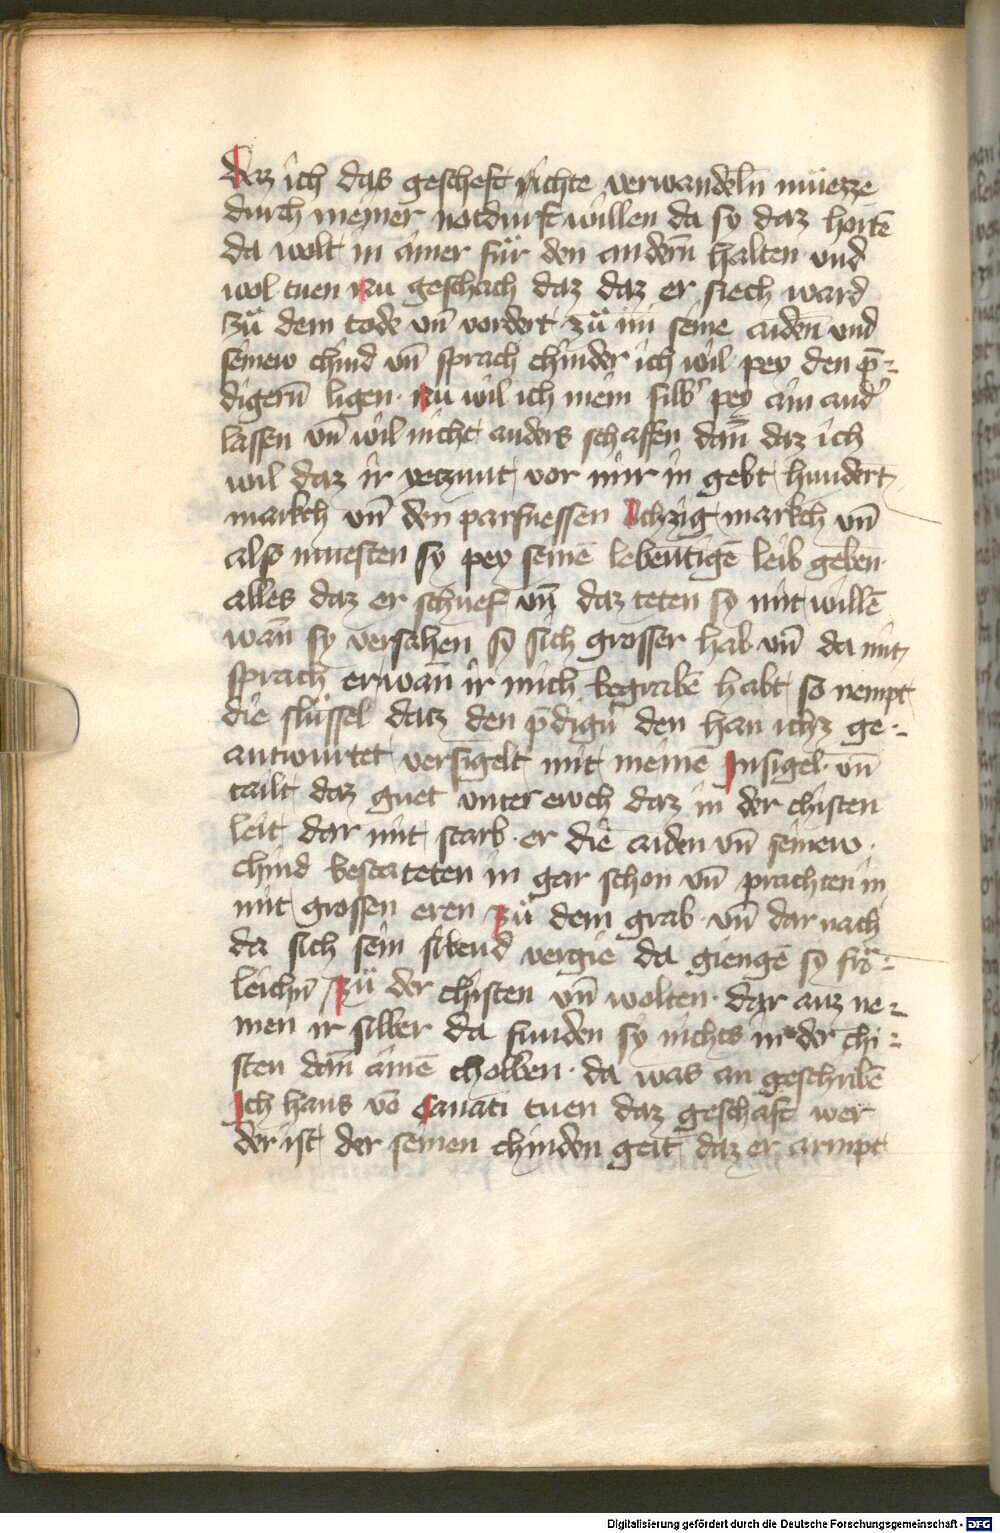 Daz ich das gescheft nichte verwandeln müezze
durch meiner notdurft willen da sy daz hortē
da wolt in ainer für den andern halten vnd
wol tuen Nu geschach daz daz er siech ward
zü dem tode vn̄ vordert zü im seine aiden vnd
seinew chind vn̄ sprach chinder ich wil pey den p̄-
digern̄ ligen · Nu wil ich mein silb͛ pey ain and͛
lassen vn̄ wil nicht anders schaffen dan̄ daz ich
wil daz ir yetzunt vor mir in gebt hundert
markch vn̄ den parfuessen Achzig markch vn̄
also muesten sy pey seinē lebentigē leib geben
alles daz er schuef vn̄ daz teten sy mit willē
wan̄ sy versahen sy sich grosser hab vn̄ da mit
sprach er wan̄ ir mich begrabē habt so nempt
die slüssel datz den p̄dign̄ den han ichz ge-
antwurtet versigelt mit meinē Insigel · vn̄
tailt daz guet vnter ewch daz in der chisten
leit dar mit starb · er die aiden vn̄ seinew ·
chind bestateten in gar schon vn̄ prachten in
mit grossen eren zü dem grab · vn̄ dar nach
da sich sein sibend vergie da giengē sy frö-
leichn̄ zü der chisten vn̄ wolten · dar auz ne-
men ir silber da funden sy nichts in der chi-
sten dan̄ ainē cholben · da was an geschribē
Ich hans vō Canati tuen daz geschäft wer
der ist der seinen chinden geit daz er armpt
Digitalisierung gefördert durch die Deutsche Forschungsgemeinschaft - DFG